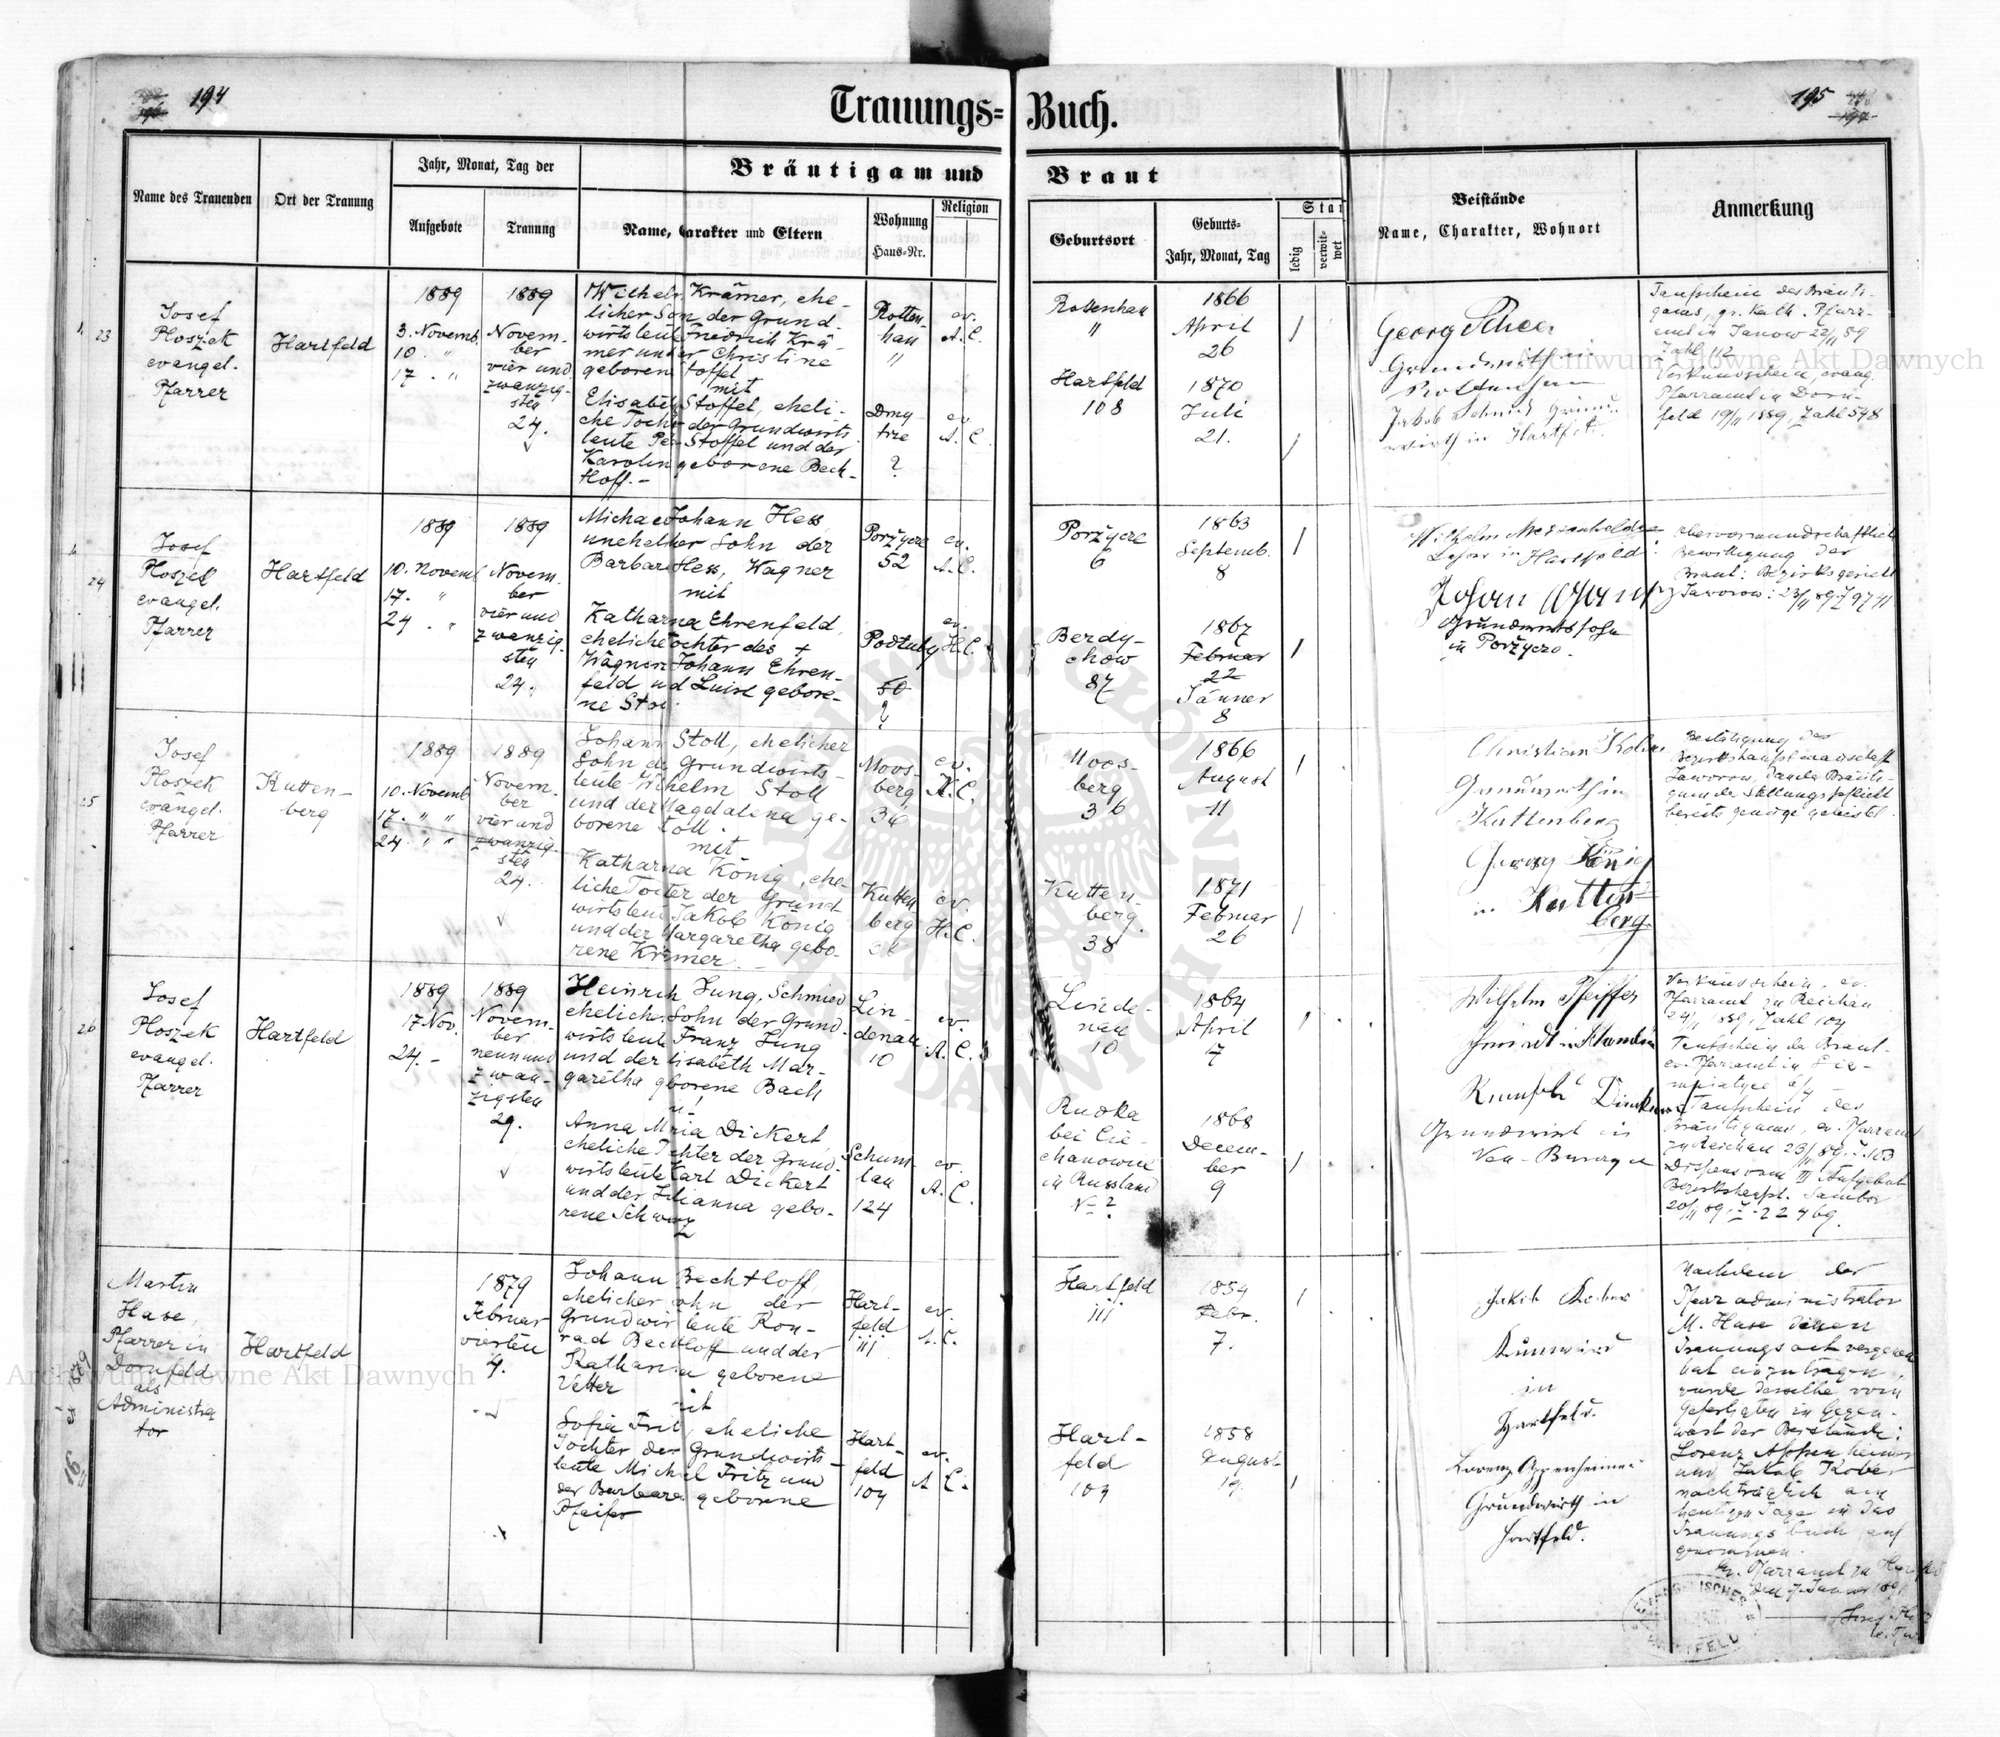 194
195
Trauungs=Buch.
Name des Trauenden
Ort der Trauung
Jahr, Monat, Tag der
Aufgebote
Trauung
Bräutigam und Braut
Name, Charakter und Eltern
Wohnung
Haus-Nr.
Religion
Geburtsort
Geburts=
Jahr, Monat, Tag
Stand
ledig
verwit-
wet
Beistände
Name, Charakter, Wohnort
Anmerkung
23
Josef
Ploszek
evangel.
Pfarrer
Hartfeld
1889
3. Novemb.
10. "
17. "
1889
Novem-
ber
vier und
zwanzig-
sten
24.
Wilhelm Krämer, ehe-
licher Son der Grund-
wirtsleute Friedrich Krä-
mer und der Christine
geborene Stoffel
mit
Elisabeth Stoffel, eheli-
che Tochter der Grundwirts
leute Peter Stoffel und der
Karoline geborene Becht-
loff. –
Rotten-
han
"
Dmy-
trze
?
ev.
A. C.
ev.
A. C.
Rottenhan
"
Hartfeld
108
1866
April
26
1870
Juli
21.
Georg Scheer
Grundwirth in
Rottenhan
Jakob Schmidt Grund-
wirth in Hartfeld.
Taufschein des Bräuti-
gams, gr. kath. Pfarr-
amt in Janow 22/11 89
Zahl 112
Verkündschein, evang.
Pfarramt in Dorn-
feld 19/11 1889, Zahl 548
24
Josef
Ploszek
evangel.
Pfarrer
Hartfeld
1889
10. Novemb.
17. "
24. "
1889
Novem-
ber
vier und
zwanzig-
sten
24.
Michael Johann Hess,
unehelicher Sohn der
Barbara Hess, Wagner
mit
Katharina Ehrenfeld,
eheliche Tochter des +
Wagners Johann Ehren-
feld und Luise gebore-
ne Stoll.
Porzycze
52
Podluby
50
?
ev.
A. C.
ev.
H. C.
Porzycze
6
Berdy-
chow
87
1863
Septemb.
8
1867
Februar
22
Jänner
8
Lehrer in Hartfeld
Johan
Grundwirtssohn
in Porzycze.
Obervormundschaftliche
Bewilligung der
Braut: Bezirksgericht
Jaworow: 23/11 89 Z 9741
25
Josef
Ploszek
evangel.
Pfarrer
Kutten-
berg
1889
10. Novemb.
17. " "
24. " "
1889
Novem-
ber
vier und
zwanzig-
sten
24.
Johann Stoll, ehelicher
Sohn der Grundwirts-
leute Wilhelm Stoll
und der Magdalena ge-
borene Stoll.
mit
Katharina König, ehe-
liche Tochter der Grund-
wirtsleute Jakob König
und der Margaretha gebo-
rene Krämer.
Moos-
berg
36
Kutten-
berg
ev.
H. C.
ev.
H. C.
Moos-
berg
36
Kutten-
berg
38
1866
August
11
1871
Februar
26
Christian
Grundwirth in
Kuttenberg
Georg König
in Kutten=
berg
Bestätigung der
Bezirkshauptmannschaft
Jaworow, dass der Bräuti-
gam der Stellungspflicht
bereits genüge geleistet.
26
Josef
Ploszek
evangel.
Pfarrer
Hartfeld
1889
17 Nov.
24. –
1889
Novem-
ber
neun und
zwan-
zigsten
29.
Heinrich Jung, Schmied
ehelicher Sohn der Grund-
wirtsleute Franz Jung
und der Elisabeth Mar-
garetha geborene Bach
mit
Anna Maria Dickert,
eheliche Tochter der Grund-
wirtsleute Karl Dickert
und der Julianna gebo-
rene Schwarz
Lin-
denau
10
Schum-
lau
124
ev.
A. C.
ev.
A. C.
Linde-
nau
10
Ruska
bei Cie-
chanowce
in Russland
No ?
1864
April
7
1868
Decem-
ber
9
Wilhelm Pfeiffer
Grundwirt in
Neu-Burczyce
Verkündschein, ev.
Pfarramt zu Reichau
24/11 1889, Zahl 104
Taufschein der Braut-
ev. Pfarramt in Sie-
miatyce
Taufschein des
Bräutigams, ev. Pfarramt
zu Reichau 23/11 89. Z. 103
Dispens vom III Aufgebot
Bezirkshptm. Sambor
20/11 89, Z. 22469.
Martin
Hase,
Pfarrer in
Dornfeld
als
Administra
tor
Hartfeld
1879
Februar
vierten
4.
Johann Bechtloff,
ehelicher Sohn der
Grundwirtsleute Kon-
rad Bechtloff und der
Katharina geborene
Vetter
mit
Sofia Fritz, eheliche
Tochter der Grundwirts-
leute Michael Fritz und
der Barbara geborene
Pfeifer
Hart-
feld
111
Hart-
feld
104
ev.
A. C.
ev.
A. C.
Hartfeld
111
Hart-
feld
104
1854
Febr.
7.
1858
August
19.
Jakob Kober
Grundwirth
in
Hartfeld.
Lorenz Oppenheimer
Grundwirth in
Hartfeld.
Nachdem der
Pfarradministrator
M. Hase diesen
Trauungsact vergessen
hat einzutragen,
wurde derselbe vom
Gefertigten in Gegen-
wart der Beistände:
Lorenz Oppenheimer
und Jakob Kober
nachträglich am
heutigen Tage in das
Trauungsbuch auf
genommen.
Ev. Pfarramt zu Hartfeld
EVANGELISCHES
HARTFELD
Archiwum Główne Akt Dawnych
Archiwum Główne Akt Dawnych
ARCHIWUM GŁÓWNE AKT DAWNYCH